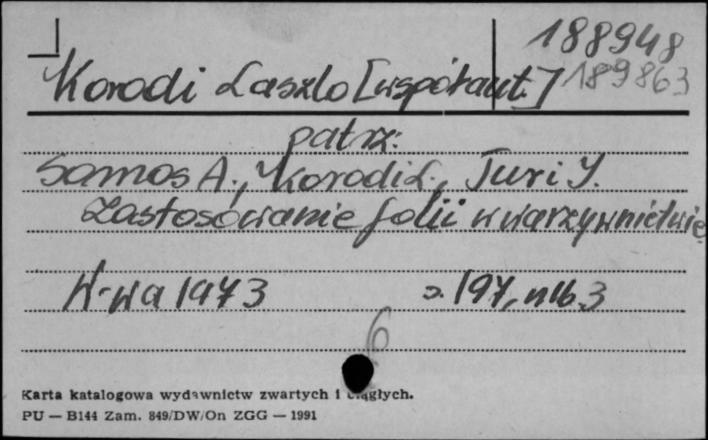 188948
Korodi Laszlo [współaut.] 189863
patrz:
Samos A., Korodi L., Turi I.
Zastosowanie folii w warzywnictwie
W-wa 1973 s. 197, nlb. 3
6
Karta katalogowa wydawnictw zwartych i ciągłych.
PU — B144 Zam. 849/DW/On ZGG — 1991